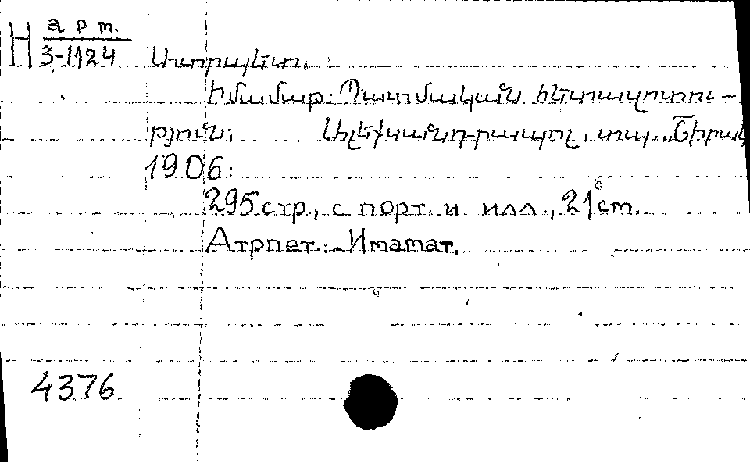 Н арт.
3-1124
Ատրպետ.
Իմամաթ: Պատմական հետազոտու-
թյուն: Ալեքսանդրապոլ, տպ. Շիրակ
1906:
295 стр, с порт. и илл., 21 cm.
Атрпет: Имамат.
4376